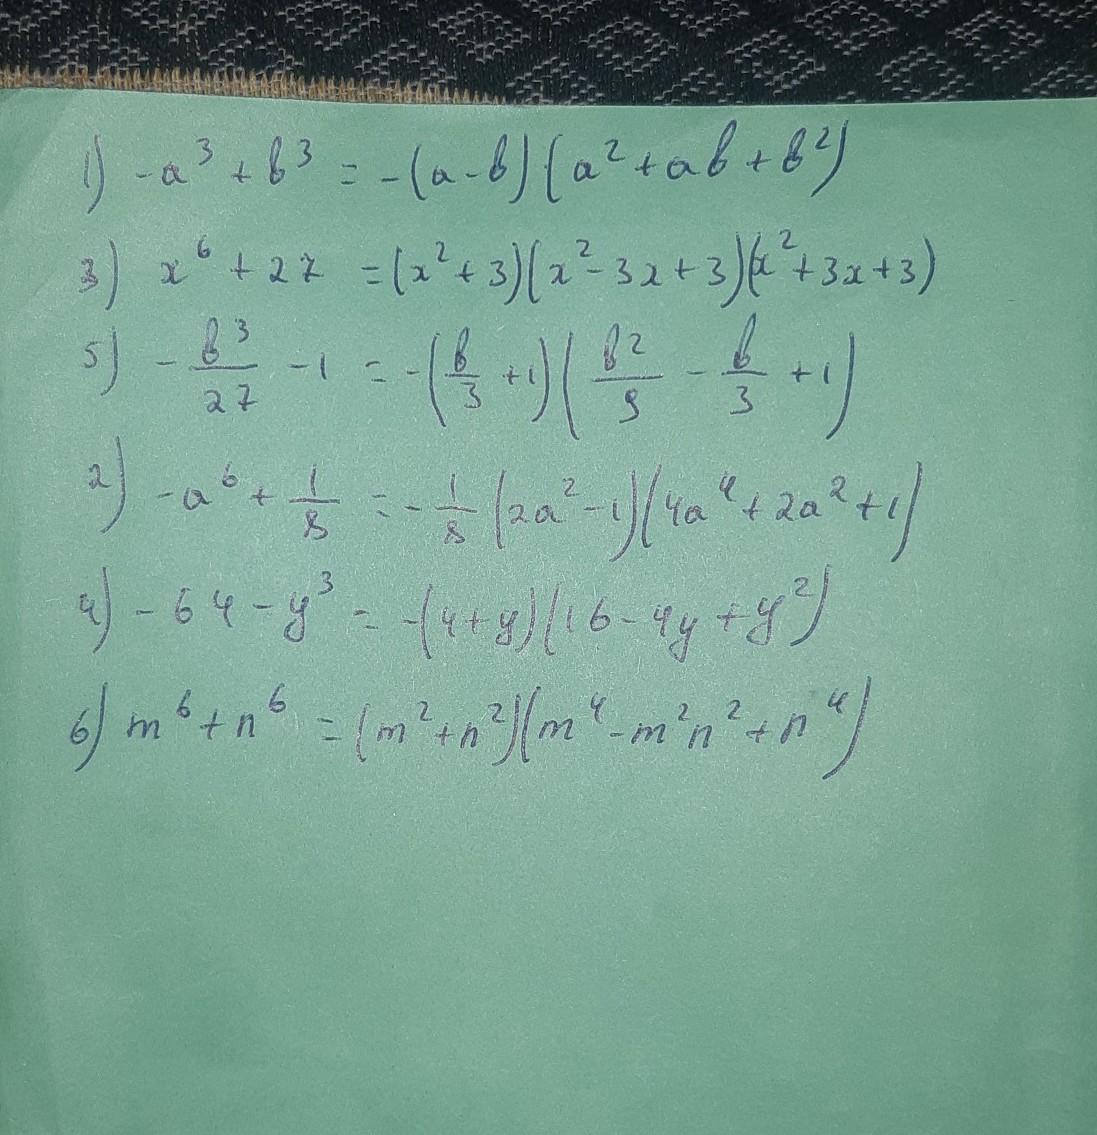 1) -a³ + b³ = -(a-b)(a² + ab + b²)
3) x⁶ + 27 = (x² + 3)(x² - 3x + 3)(x² + 3x + 3)
5) - b³/27 - 1 = -(b/3 + 1)(b²/9 - b/3 + 1)
2) -a⁶ + 1/8 = - 1/8 (2a² - 1)(4a⁴ + 2a² + 1)
4) - 64 - y³ = -(4 + y)(16 - 4y + y²)
6) m⁶ + n⁶ = (m² + n²)(m⁴ - m²n² + n⁴)